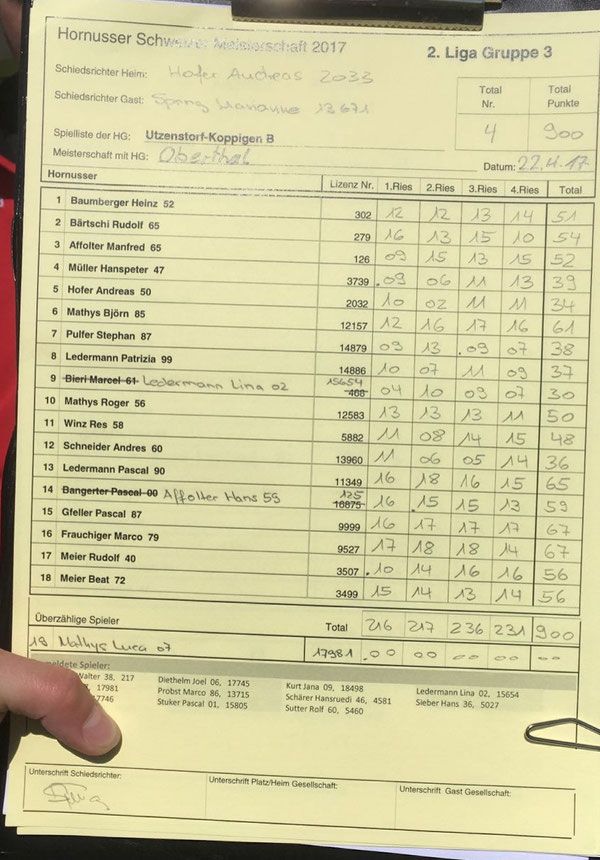 Hornusser Schweizer Meisterschaft 2017
2. Liga Gruppe 3
Schiedsrichter Heim: Hofer Andreas 2033
Schiedsrichter Gast: Marianne 13671
Total Nr. Total Punkte
4 900
Spielliste der HG: Utzenstorf-Koppigen B
Meisterschaft mit HG: Oberthal
Datum: 22.4.17
Hornusser Lizenz Nr. 1.Ries 2.Ries 3.Ries 4.Ries Total
1 Baumberger Heinz 52 302 12 12 13 14 51
2 Bärtschi Rudolf 65 279 16 13 15 10 54
3 Affolter Manfred 65 126 09 15 13 15 52
4 Müller Hanspeter 47 3739 .09 06 11 13 39
5 Hofer Andreas 50 2032 10 02 11 11 34
6 Mathys Björn 85 12157 12 16 17 16 61
7 Pulfer Stephan 87 14879 09 13 .09 07 38
8 Ledermann Patrizia 99 14886 10 07 11 09 37
9 Bieri Marcel 61 Ledermann Lina 02 15654 468 04 10 09 07 30
10 Mathys Roger 56 12583 13 13 13 11 50
11 Winz Res 58 5882 11 08 14 15 48
12 Schneider Andres 60 13960 11 06 05 14 36
13 Ledermann Pascal 90 11349 16 18 16 15 65
14 Bangerter Pascal 00 Affolter Hans 59 125 16875 16 .15 15 13 59
15 Gfeller Pascal 87 9999 16 17 17 17 67
16 Frauchiger Marco 79 9527 17 18 18 14 67
17 Meier Rudolf 40 3507 .10 14 16 16 56
18 Meier Beat 72 3499 15 14 13 14 56
Überzählige Spieler Total 216 217 236 231 900
19 Mathys Luca 07 17981 .00 00 00 00 00
meldete Spieler:
Walter 38, 217 Diethelm Joel 06, 17745 Kurt Jana 09, 18498 Ledermann Lina 02, 15654
17981 Probst Marco 86, 13715 Schärer Hansruedi 46, 4581 Sieber Hans 36, 5027
17746 Stuker Pascal 01, 15805 Sutter Rolf 60, 5460
Unterschrift Schiedsrichter: Unterschrift Platz/Heim Gesellschaft: Unterschrift Gast Gesellschaft: